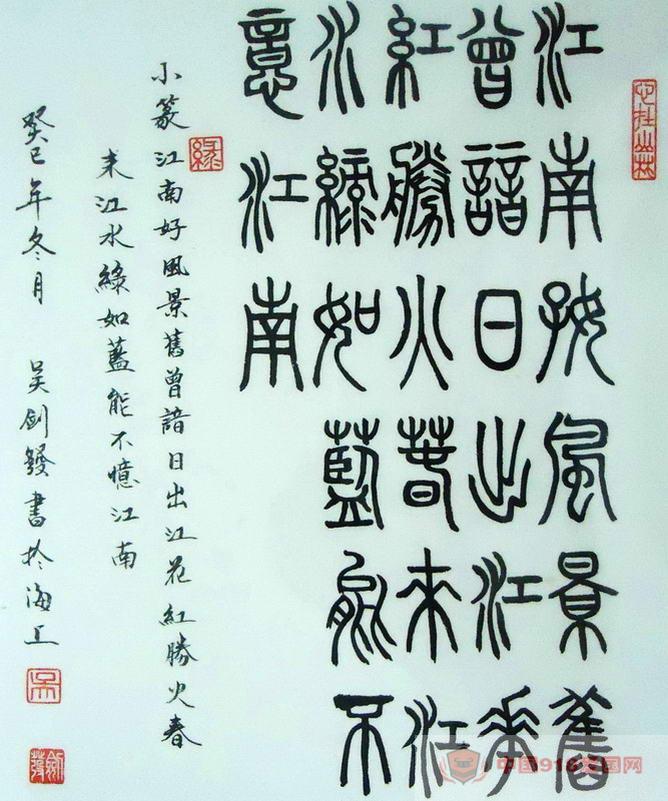 江南好風景舊
曾諳日出江花
紅勝火春來江
水綠如藍能不
憶江南
小篆 江南好風景舊曾諳日出江花紅勝火春
来江水綠如藍能不憶江南
癸巳年冬月 吴劍書於海上
緣
吴
中国918爱国网